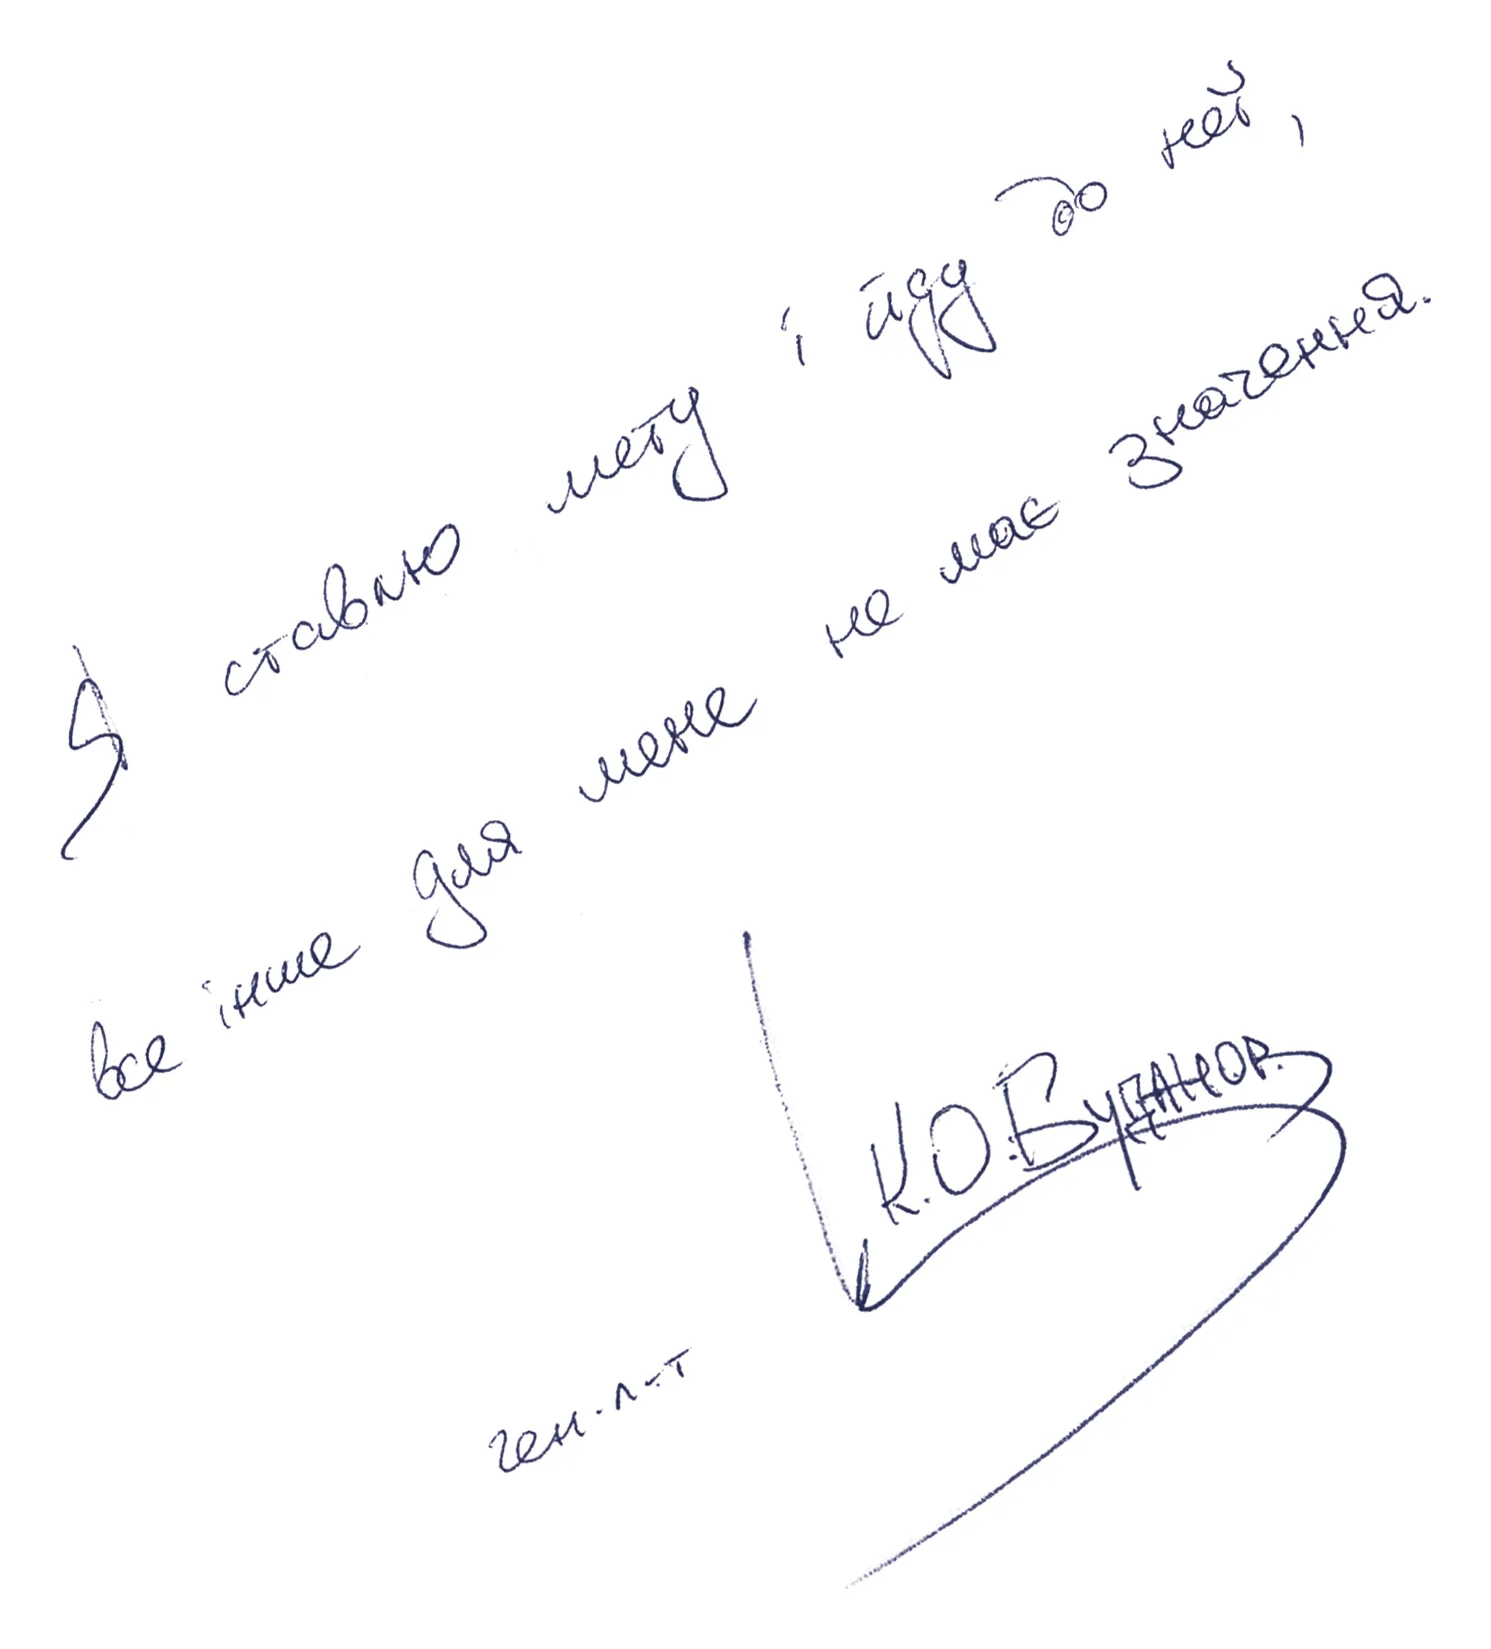 Я ставлю мету і йду до неї,
все інше для мене не має значення.
К.О.Буданов
ген.л-т